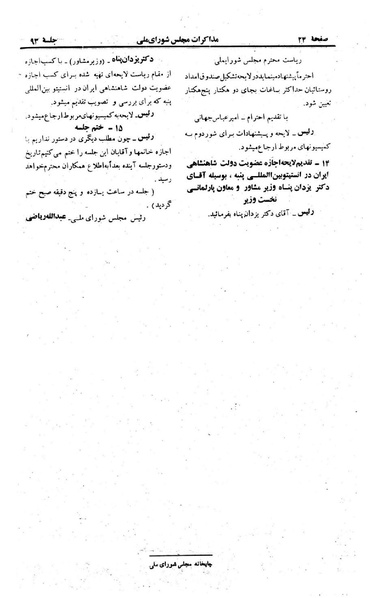 صفحهٔ ۲۴
مذاکرات مجلس شورای ملی
جلسهٔ ۹۳
ریاست محترم مجلس شورایملی
احتراماً پیشنهاد مینماید در لایحه تشکیل صندوق امداد
روستائیان حداکثر ساعات بجای دو هکتار پنج هکتار
تعیین شود.
با تقدیم احترام ـ امیرعباس جهانی
رئیس ـ لایحه و پیشنهادات برای شور دوم به
کمیسیونهای مربوط ارجاع میشود.
۱۴ ـ تقدیم لایحه اجازه عضویت دولت شاهنشاهی
ایران در انستیتو بین المللی پنبه ، بوسیله آقای
دکتر یزدان پناه وزیر مشاور و معاون پارلمانی
نخست وزیر
رئیس ـ آقای دکتر یزدان پناه بفرمائید.
دکتر یزدان پناه (وزیر مشاور) ـ با کسب اجازه
از مقام ریاست لایحه‌ای تهیه شده برای کسب اجازه
عضویت دولت شاهنشاهی ایران در انستیتو بین‌المللی
پنبه که برای بررسی و تصویب تقدیم میشود.
رئیس ـ لایحه به کمیسیونهای مربوط ارجاع میشود.
۱۵ ـ ختم جلسه
رئیس ـ چون مطلب دیگری در دستور نداریم با
اجازه خانمها و آقایان این جلسه را ختم می‌کنیم تاریخ
و دستور جلسه آینده بعداً به اطلاع همکاران محترم خواهد
رسید .
( جلسه در ساعت یازده و پنج دقیقه صبح ختم
گردید )
رئیس مجلس شورای ملی ـ عبدالله ریاضی
چاپخانه مجلس شورای ملی